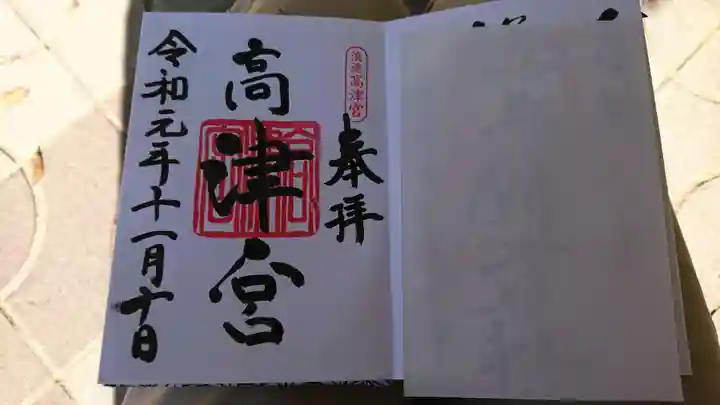 浪速高津宮
奉拝
高津宮
令和元年十一月十日